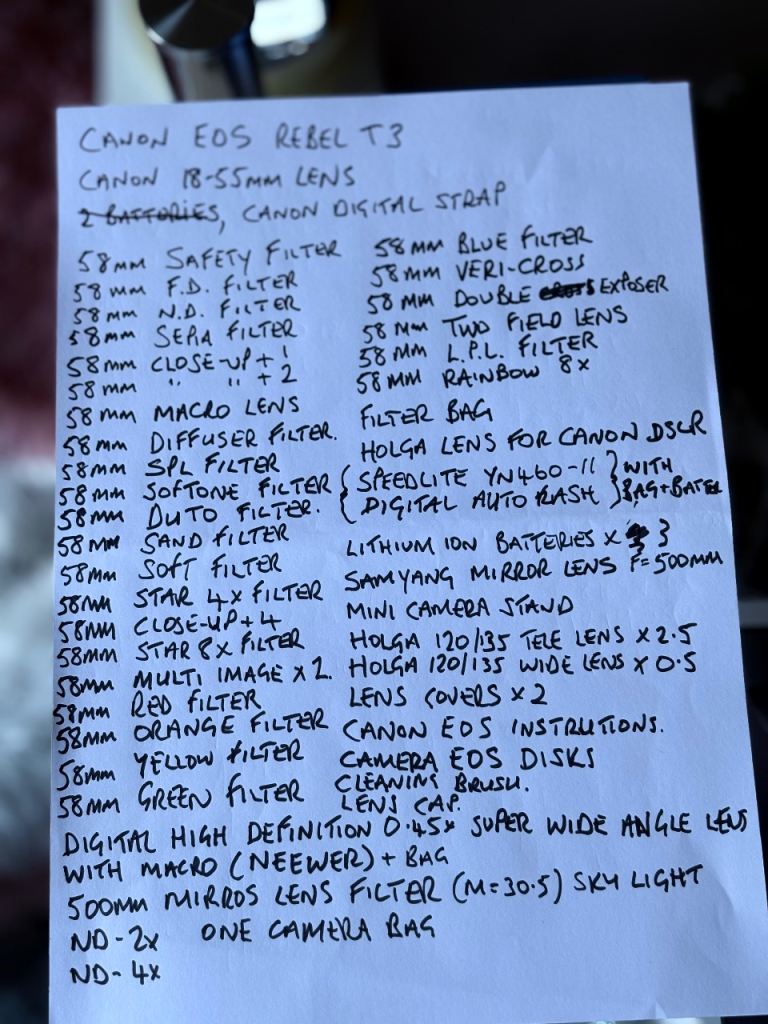 CANON EOS REBEL T3
CANON 18-55MM LENS
2 BATTORIES, CANON DIGITAL STRAP
58MM SAFETY FILTER
58 MM F.D. FILTER
58 MM N.D. FILTER
58 MM SEPIA FILTER
58 MM CLOSE-UP + 1
58 MM " " + 2
58 MM MACRO LENS
58 MM DIFFUSER FILTER.
58MM SPL FILTER
58 MM SOFTONE FILTER
58 MM DUTO FILTER.
58 MM SAND FILTER
58MM SOFT FILTER
58MM STAR 4X FILTER
58MM CLOSE-UP + 4
58MM STAR 8X FILTER
58MM MULTI IMAGE X 2.
58MM RED FILTER
58MM ORANGE FILTER
58MM YELLOW FILTER
58MM GREEN FILTER
58 MM BLUE FILTER
58 MM VERI-CROSS
58 MM DOUBLE EXPOSER
58 MM TWO FIELD LENS
58 MM L.P.L. FILTER
58 MM RAINBOW 8X
FILTER BAG
HOLGA LENS FOR CANON DSLR
(SPEEDLITE YN460-II) WITH
(DIGITAL AUTO FLASH) BAG+
LITHIUM ION BATTERIES X 3
SAMYANG MIRROR LENS F=500MM
MINI CAMERA STAND
HOLGA 120/135 TELE LENS X 2.5
HOLGA 120/135 WIDE LENS X 0.5
LENS COVERS X 2
CANON EOS INSTRUTIONS.
CAMERA EOS DISKS
CLEANING BRUSH.
LENS CAP.
DIGITAL HIGH DEFINITION 0.45X SUPER WIDE ANGLE LENS
WITH MACRO (NEEWER) + BAG
500MM MIRROS LENS FILTER (M=30.5) SKY LIGHT
ND-2X ONE CAMERA BAG
ND-4X